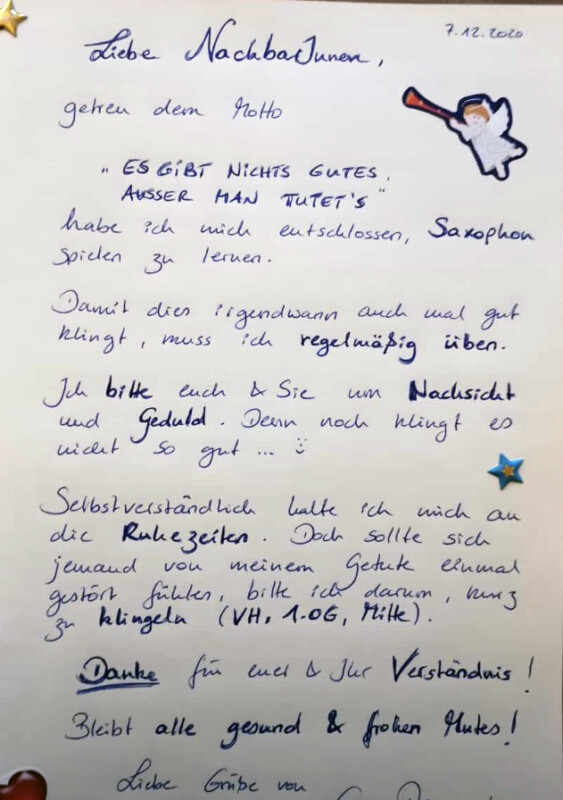 7.12.2020
Liebe NachbarInnen,
getreu dem Motto
„ES GIBT NICHTS GUTES,
AUSSER MAN TUTET'S"
habe ich mich entschlossen, Saxophon
spielen zu lernen.
Damit dies irgendwann auch mal gut
klingt, muss ich regelmäßig üben.
Ich bitte euch & Sie um Nachsicht
und Geduld. Denn noch klingt es
nicht so gut ... :)
Selbstverständlich halte ich mich an
die Ruhezeiten. Doch sollte sich
jemand von meinem Getute einmal
gestört fühlen, bitte ich darum, kurz
zu klingeln (VH, 1.OG, Mitte).
Danke für euer & Ihr Verständnis!
Bleibt alle gesund & frohen Mutes!
Liebe Grüße von